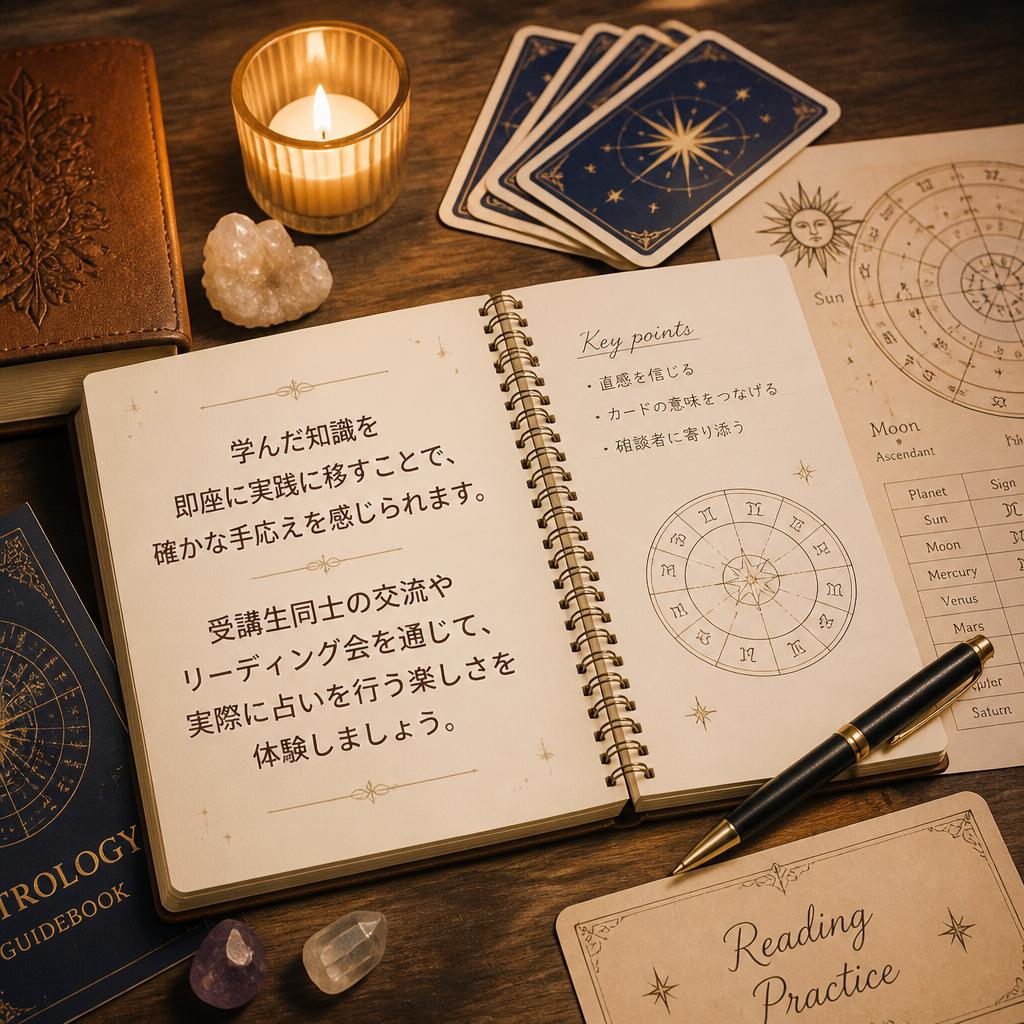 学んだ知識を
即座に実践に移すことで、
確かな手応えを感じられます。
受講生同士の交流や
リーディング会を通じて、
実際に占いを行う楽しさを
体験しましょう。
Key points
・直感を信じる
・カードの意味をつなげる
・相談者に寄り添う
Sun
Moon
Ascendant
Planet Sign
Sun
Moon
Mercury
Venus
Mars
Saturn
TROLOGY
GUIDEBOOK
Reading
Practice